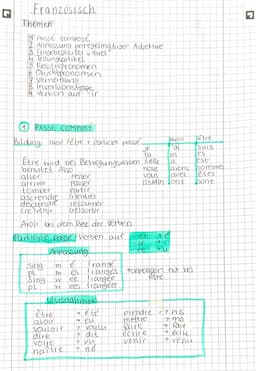 Französisch
Themen
1 Passé composé
2 Anpassung unregelmäßiger Adjektive
4 Teilungsartikel
5 Relativpronomen
6 Objektpronomen
7 Verneinung
8 Inversionsfrage
9 Verben auf -ir
1 PASSÉ COMPOSÉ
Bildung: avoir / être + participe passé
avoir être
je ai suis
tu as es
il/elle a est
nous avons sommes
vous avez êtes
ils/elles ont sont
Être wird bei Bewegungsverben
benutzt. Also
aller rester
arriver passer
tomber partir
rentrer
retourner
ressortir
Avoir bei dem Rest der Verben
Participe passé Verben auf -er → é
-ir → i
-re → u
Anpassung
sing m é rangé
pl m és rangés
sing w ée rangée
pl w ées rangées
*angepasst nur bei
être
Ausnahmen
être → été
avoir → eu
vouloir → voulu
dire → dit
voir → vu
naître → né
prendre → pris
mettre → mis
faire → fait
écrire → écrit
venir → venu